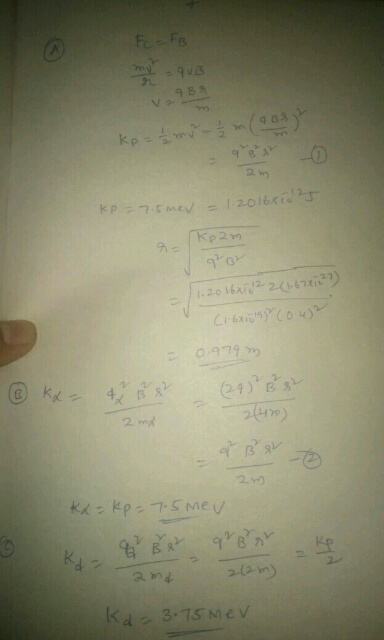 Ⓐ FC = FB
mv²/r = qvB
v = qBr/m
Kp = ½ mv² = ½ m (qBr/m)²
= q²B²r²/2m —①
Kp = 7.5 meV = 1.2016x10⁻¹² J
r = √(Kp2m/q²B²)
= √(1.2016x10⁻¹² 2(1.67x10⁻²⁷)/(1.6x10⁻¹⁹)² (0.4)²)
= 0.979 m
Ⓑ Kα = qα² B² r²/2mα = (2q)² B² r²/2(4m)
= q² B² r²/2m —②
Kα = Kp = 7.5 MeV
Kd = qd² B² r²/2md = q² B² r²/2(2m) = Kp/2
Kd = 3.75 MeV